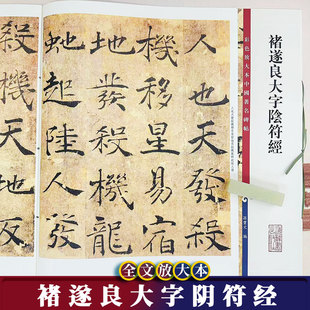 褚遂良大字陰符經
彩色放大本中國著名碑帖
孫寶文 編
人也天發殺
機移星易宿
地發殺機龍
虵起陸人發
殺機天地
全文放大本
褚遂良大字阴符经